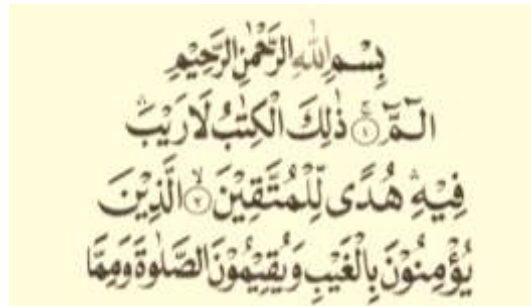 بِسْمِ اللهِ الرَّحْمٰنِ الرَّحِيْمِ
الٓمّٓ ۚ﴿۱﴾ ذٰلِكَ الْكِتٰبُ لَا رَيْبَ ۛۖ
فِيْهِ ۛ هُدًى لِّلْمُتَّقِيْنَ ۙ﴿۲﴾ الَّذِيْنَ
يُؤْمِنُوْنَ بِالْغَيْبِ وَيُقِيْمُوْنَ الصَّلٰوةَ وَمِمَّا